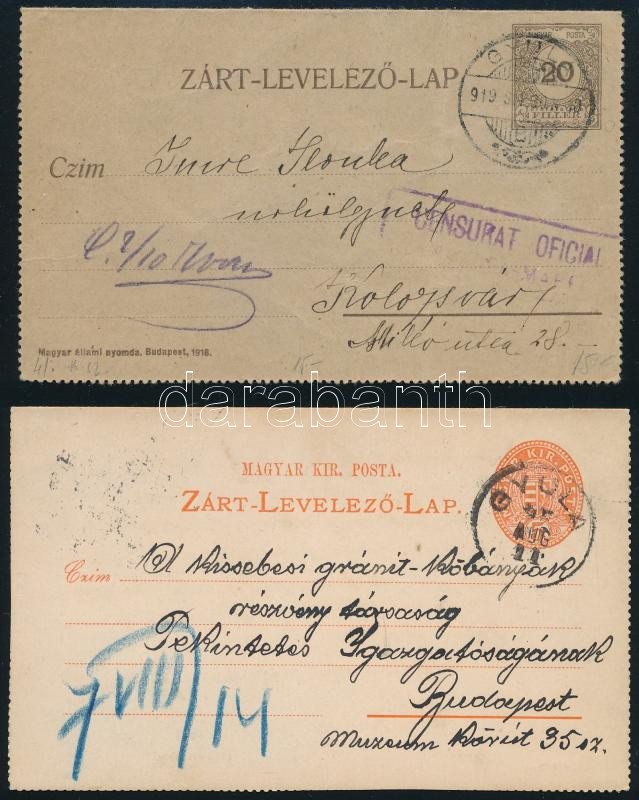 MAGYAR POSTA
20
FILLÉR
ZÁRT-LEVELEZŐ-LAP
GYU
919
Czim Imre Ilonka
CENSURAT OFICIAL
Kolozsvár
Milló utca 28.-
Magyar állami nyomda. Budapest, 1918.
15-
darabanth
MAGYAR KIR. POSTA.
ZÁRT-LEVELEZŐ-LAP.
KIR. POS
GYULA
AUG
11
Czim A kissebesi gránit-kőbányák
részvény társaság
Tekintetes Igazgatóságának
Budapest
Muzeum Körút 35 sz.
VIII 14